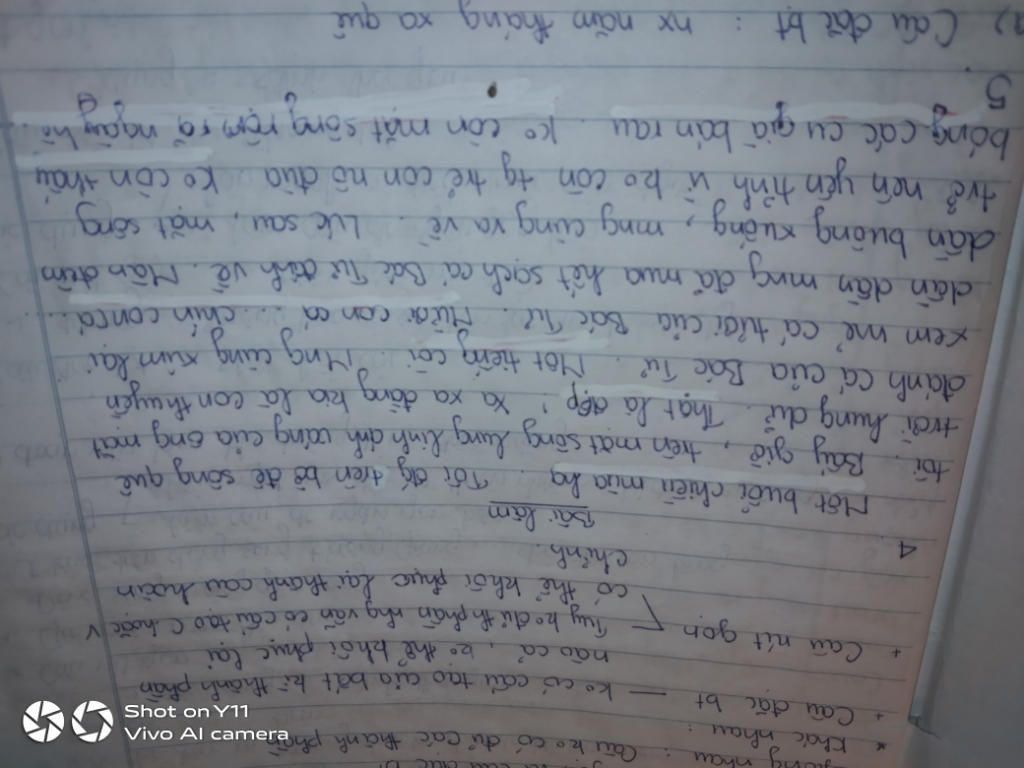 giống nhau : Câu ko có đủ các thành phần
* Khác nhau :
+ Câu đặc bt — ko có cấu tạo của bất kì thành phần
nào cả, ko thể khôi phục lại
+ Câu rút gọn Tuy ko đủ th phần nhg vẫn có cấu tạo C hoặc V
có thể khôi phục lại thành câu hoàn
chỉnh.
4
Bài làm
Một buổi chiều mùa hạ. Tôi đg trên bờ đê sông quê
tôi. Bấy giờ, trên mặt sông lung linh ánh vàng của ông mặt
trời hung dữ. Thật là đẹp! Xa xa đằng kia là con thuyền
đánh cá của Bác Tư. Một tiếng còi. Mng cùng xúm lại
xem mẻ cá tươi của Bác Tư. Mười con cá... chín con cá....
dần dần mng đã mua hết sạch cá Bác Tư đánh về. Màn đêm
dần buông xuống, mng cùng ra về. Lúc sau, mặt sông
trở nên yên tĩnh vì ko còn tg trẻ con nô đùa ko còn thấy
bóng các cụ già bán rau. Ko còn mặt sông rộn rã ngày hè.
5.
a) Câu đặc bt : nx năm tháng xa quê
Shot on Y11
Vivo AI camera